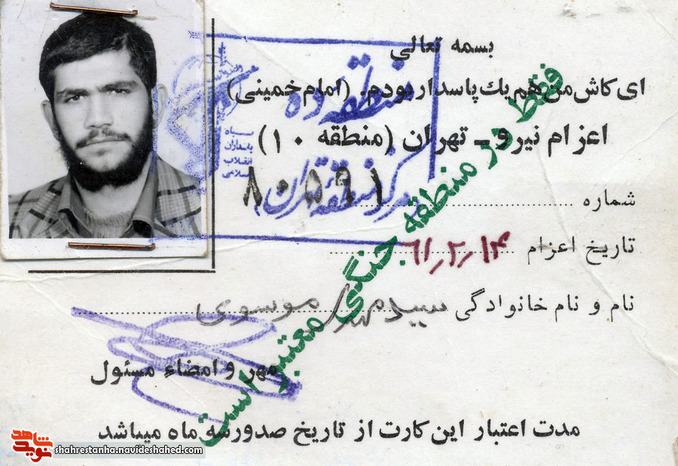 بسمه تعالی
ای کاش من هم یك پاسدار بودم. (امام خمینی)
اعزام نیرو - تهران (منطقه ۱۰)
شماره ۸۰۵۹۱
تاریخ اعزام ۶۱٫۲٫۱۴
نام و نام خانوادگی سید مهدی موسوی
مهر و امضاء مسئول
مدت اعتبار این کارت از تاریخ صدور سه ماه میباشد
فقط در منطقه جنگی معتبر است
منطقه ده
مرکز منطقه تهران
سپاه
پاسداران
انقلاب
اسلامی
نوید شاهد
shahrestanha.navideshahed.com